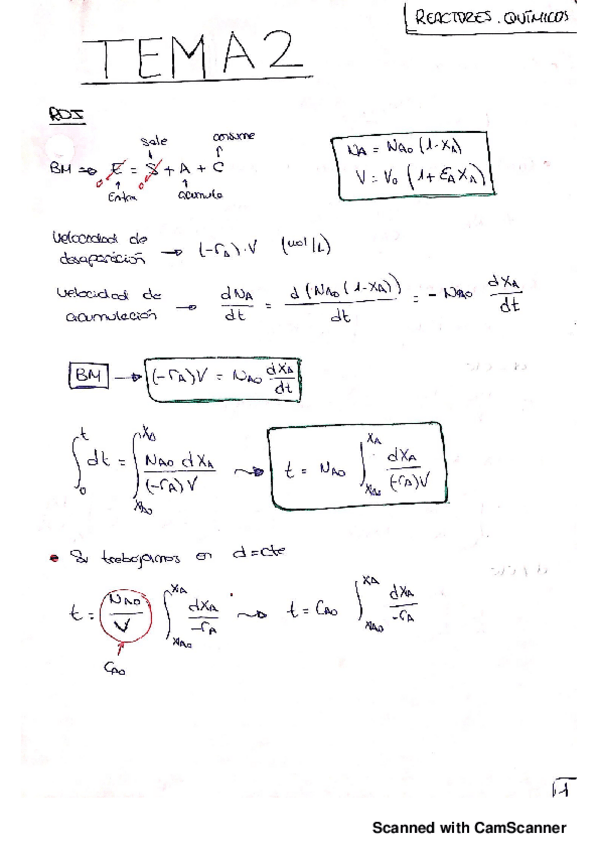 REACTORES. QUÍMICOS
TEMA 2
RDI
sale consume
BM → E = S + A + C
Entra acumula
NA = NA0 (1-XA)
V = V0 (1+ εA XA)
Velocidad de desaparición → (-rA)·V (mol/L)
Velocidad de acumulación → dNA/dt = d(NA0(1-XA))/dt = - NA0 dXA/dt
BM → (-rA)V = NA0 dXA/dt
∫0^t dt = ∫XA0^XA NA0 dXA/(-rA)V ⇝ t = NA0 ∫XA0^XA dXA/(-rA)V
• Si trabajamos en d=cte
t = NA0/V ∫XA0^XA dXA/-rA ⇝ t = CA0 ∫XA0^XA dXA/-rA
CA0
1
Scanned with CamScanner